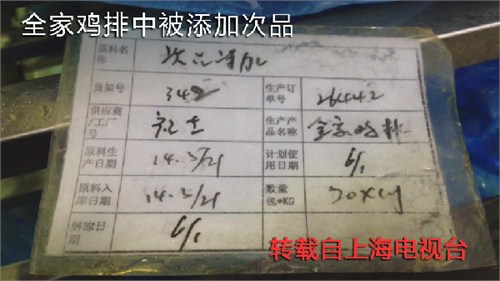 全家鸡排中被添加次品
原料名称 次品添加
货架号 342 生产订单号 26442
供应商/工厂号 生产产品名称 全家鸡排
原料生产日期 14.5/21 计划使用日期 6/1
原料入库日期 14.5/21 数量 包*KG
解凍日期 6/1
转载自上海电视台